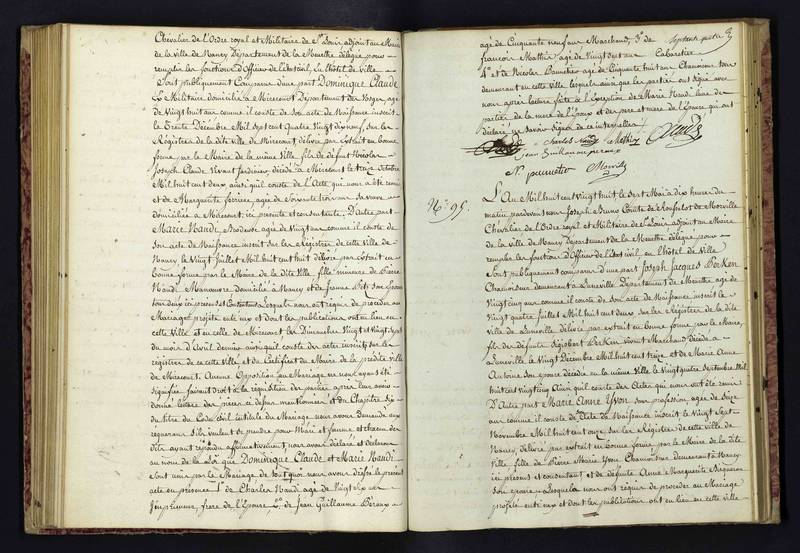 Chevalier de l'Ordre royal et Militaire de St. Louis adjoint au Maire
de la ville de Nancy Département de la Meurthe délégué pour
remplir les fonctions d'Officier de l'état civil, en l'hôtel de Ville
Sont publiquement Comparus d'une part Dominique Claude
Militaire domicilié à Mirecourt Département des Vosges, agé
de Vingt huit ans comme il conste de son acte de Naissance inscrit
le Trente Décembre Mil Sept cent Quatre Vingt dix neuf, sur les
Registres de la dite ville de Mirecourt délivré par Extrait en bonne
forme par le Maire de la même Ville fils de défunt Nicolas
Joseph Claude Vivant Jardinier, décédé à Mirecourt le trois Octobre
Mil huit cent deux, ainsi qu'il conste de l'Acte qui nous a été remis
et de Marguerite agée de Soixante trois ans sa veuve
domiciliée à Mirecourt, ici présente et consentante, D'autre part
Marie Naudi, Brodeuse agée de Vingt ans comme il conste de
son acte de Naissance inscrit sur les Registres de cette Ville de
Nancy, le Vingt Juillet Mil huit cent huit délivré par extrait en
bonne forme par le Maire de la dite Ville, fille mineure de Pierre
Naudi Manœuvre Domicilié à Nancy et de Jeanne son Epouse
tous deux ici présens et Consentans Lesquels nous ont requis de procéder au
Mariage projeté entre eux et dont les publications ont eu lieu en
cette Ville et en celle de Mirecourt les Dimanches Vingt et Vingt Sept
du mois d'Avril dernier ainsi qu'il conste des actes inscrits sur les
registres de cette Ville et du Certificat du Maire de la prédite Ville
de Mirecourt. Aucune Opposition au Mariage ne nous ayant été
signifiée faisant droit à la réquisition des parties après leur avoir
donné lecture des pièces ci dessus mentionnées et du Chapitre Six
du titre du Code civil intitulé du Mariage nous avons Demandé aux
requérans S'ils veulent se prendre pour Mari et femme et chacun des
dits ayant répondu affirmativement nous avons déclaré et déclarons
au nom de la loi que Dominique Claude et Marie Naudi
sont unis par le Mariage de tout quoi nous avons dressé le présent
acte en présence 1° de Charles Naudi agé de Vingt six ans
Imprimeur, frère de l'Epouse, 2° de Jean Guillaume Peroux
agé de Cinquante neuf ans Marchand, 3° de
françois Mathis agé de Vingt Sept ans Cabaretier
4° et de Nicolas agé de Cinquante huit ans Chamoiseur tous
demeurant en cette Ville lesquels ainsi que les parties ont signé avec
nous après lecture faite à l'Exception de Marie Naudi l'une des
parties de la mère de l'Epoux et des père et mère de l'Epouse qui ont
déclaré ne Savoir Signer de ce interpellés
Charles Naudi Mathis
jean Guillaume peroux
Morville
N°. 95.
L'An Mil huit cent Vingt huit le Sept Mai à dix heures du
matin pardevant nous Joseph Bruno Comte de Morville
Chevalier de l'Ordre royal et Militaire de St. Louis adjoint au Maire
de la ville de Nancy Département de la Meurthe délégué pour
remplir les fonctions d'Officier de l'état civil, en l'hôtel de Ville
Sont publiquement comparus d'une part Joseph Jacques
Chamoiseur demeurant à Lunéville Département de Meurthe agé de
Vingt Cinq ans comme il conste de Son acte de Naissance inscrit le
Vingt quatre Juillet Mil huit cent deux sur les Registres de la dite
Ville de Lunéville délivré par extrait en bonne forme par le Maire,
fils des défunts vivant Marchand décédé à
Lunéville le Vingt Décembre Mil huit cent treize et de Marie Anne
son épouse décédée en la même Ville le Vingt quatre Septembre Mil
huit cent Vingt cinq Ainsi qu'il conste des Actes qui nous ont été remis
D'Autre part Marie Anne Yvon sans profession, agée de Seize
ans comme il conste de l'Acte de Naissance inscrit le Vingt Sept
Novembre Mil huit cent onze, sur les Registres de cette ville de
Nancy, délivré par extrait en bonne forme par le Maire de la dite
Ville fille de Pierre Marie Yvon Chamoiseur demeurant à Nancy
ici présent et consentant et de défunte Anne Marguerite
son Epouse Lesquels nous ont requis de procéder au Mariage
projeté entre eux et dont les publications ont eu lieu en cette ville